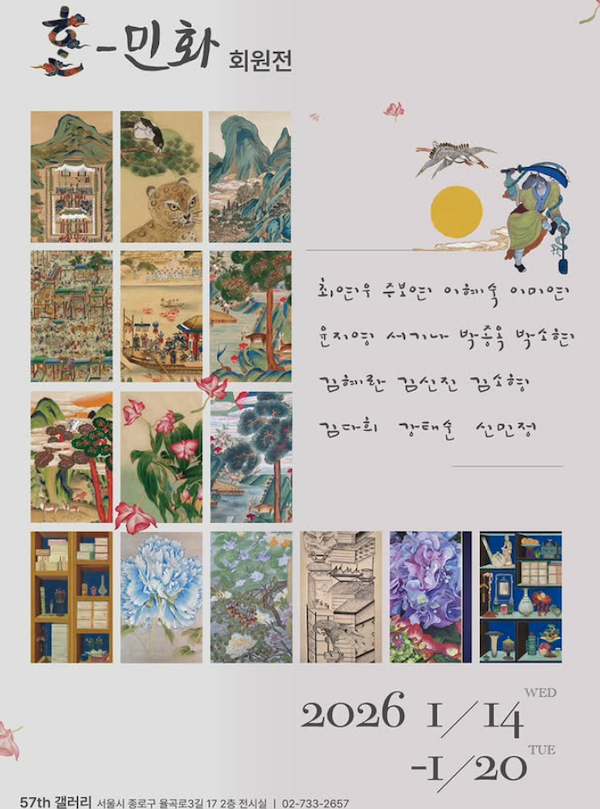 혼-민화 회원전
최연우 주보연 이혜숙 이미연
윤지영 서기나 박종옥 박소현
김혜란 김신진 김소형
김다희 강태순 신민정
2026 1/14 WED
-1/20 TUE
57th 갤러리 서울시 종로구 율곡로3길 17 2층 전시실 | 02-733-2657